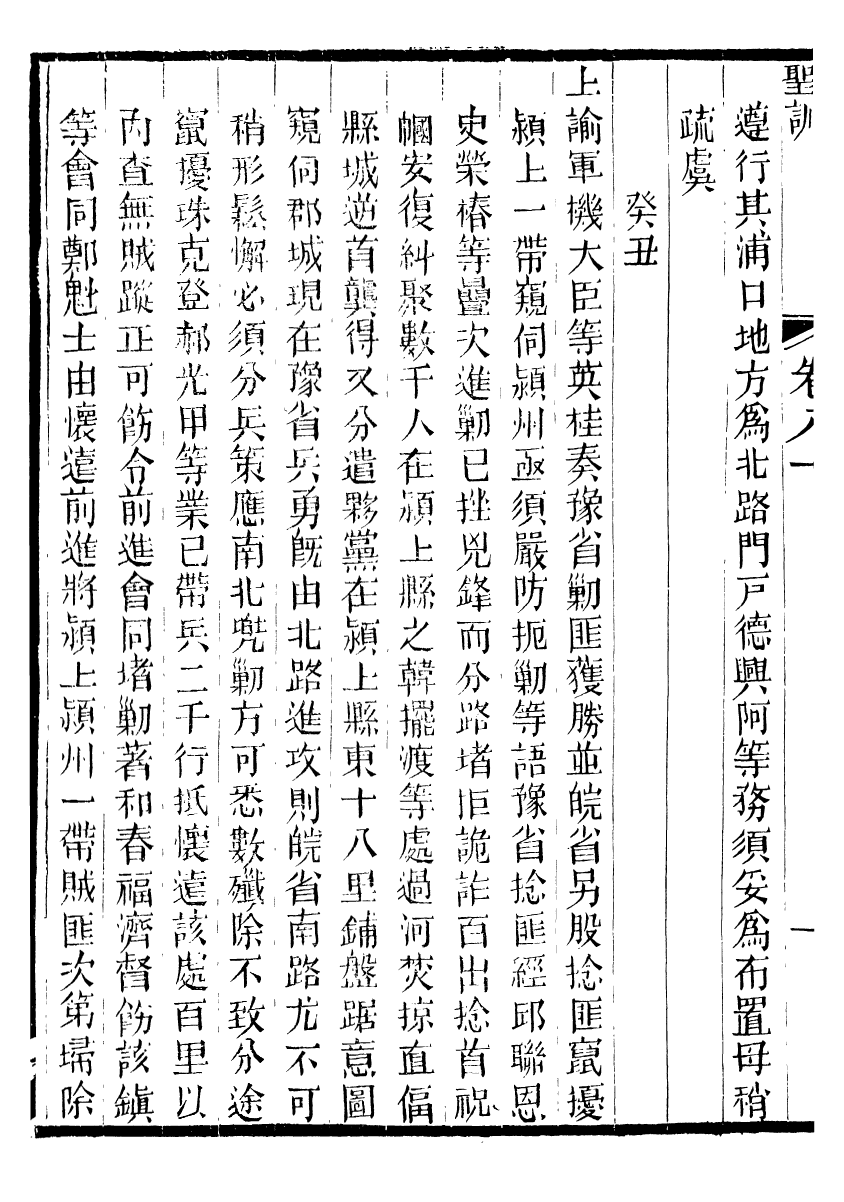 聖訓
遵行其浦口地方為北路門戸德興阿等務須妥為布置毋稍
疏虞
癸丑
上諭軍機大臣等英桂奏豫省勦匪獲勝並皖省另股捻匪竄擾
潁上一帶窺伺潁州亟須嚴防扼勦等語豫省捻匪經邱聯恩
史榮椿等疊次進勦已挫兇鋒而分路堵拒詭詐百出捻首祝
幗安復糾聚數千人在潁上縣之韓擺渡等處過河焚掠直偪
縣城逆首龔得又分遣夥黨在潁上縣東十八里鋪盤踞意圖
窺伺郡城現在豫省兵勇旣由北路進攻則皖省南路尤不可
稍形鬆懈必須分兵策應南北兜勦方可悉數殲除不致分途
竄擾珠克登郝光甲等業已帶兵二千行抵懷遠該處百里以
內查無賊蹤正可飭令前進會同堵勦著和春福濟督飭該鎭
等會同鄭魁士由懷遠前進將潁上潁州一帶賊匪次第埽除